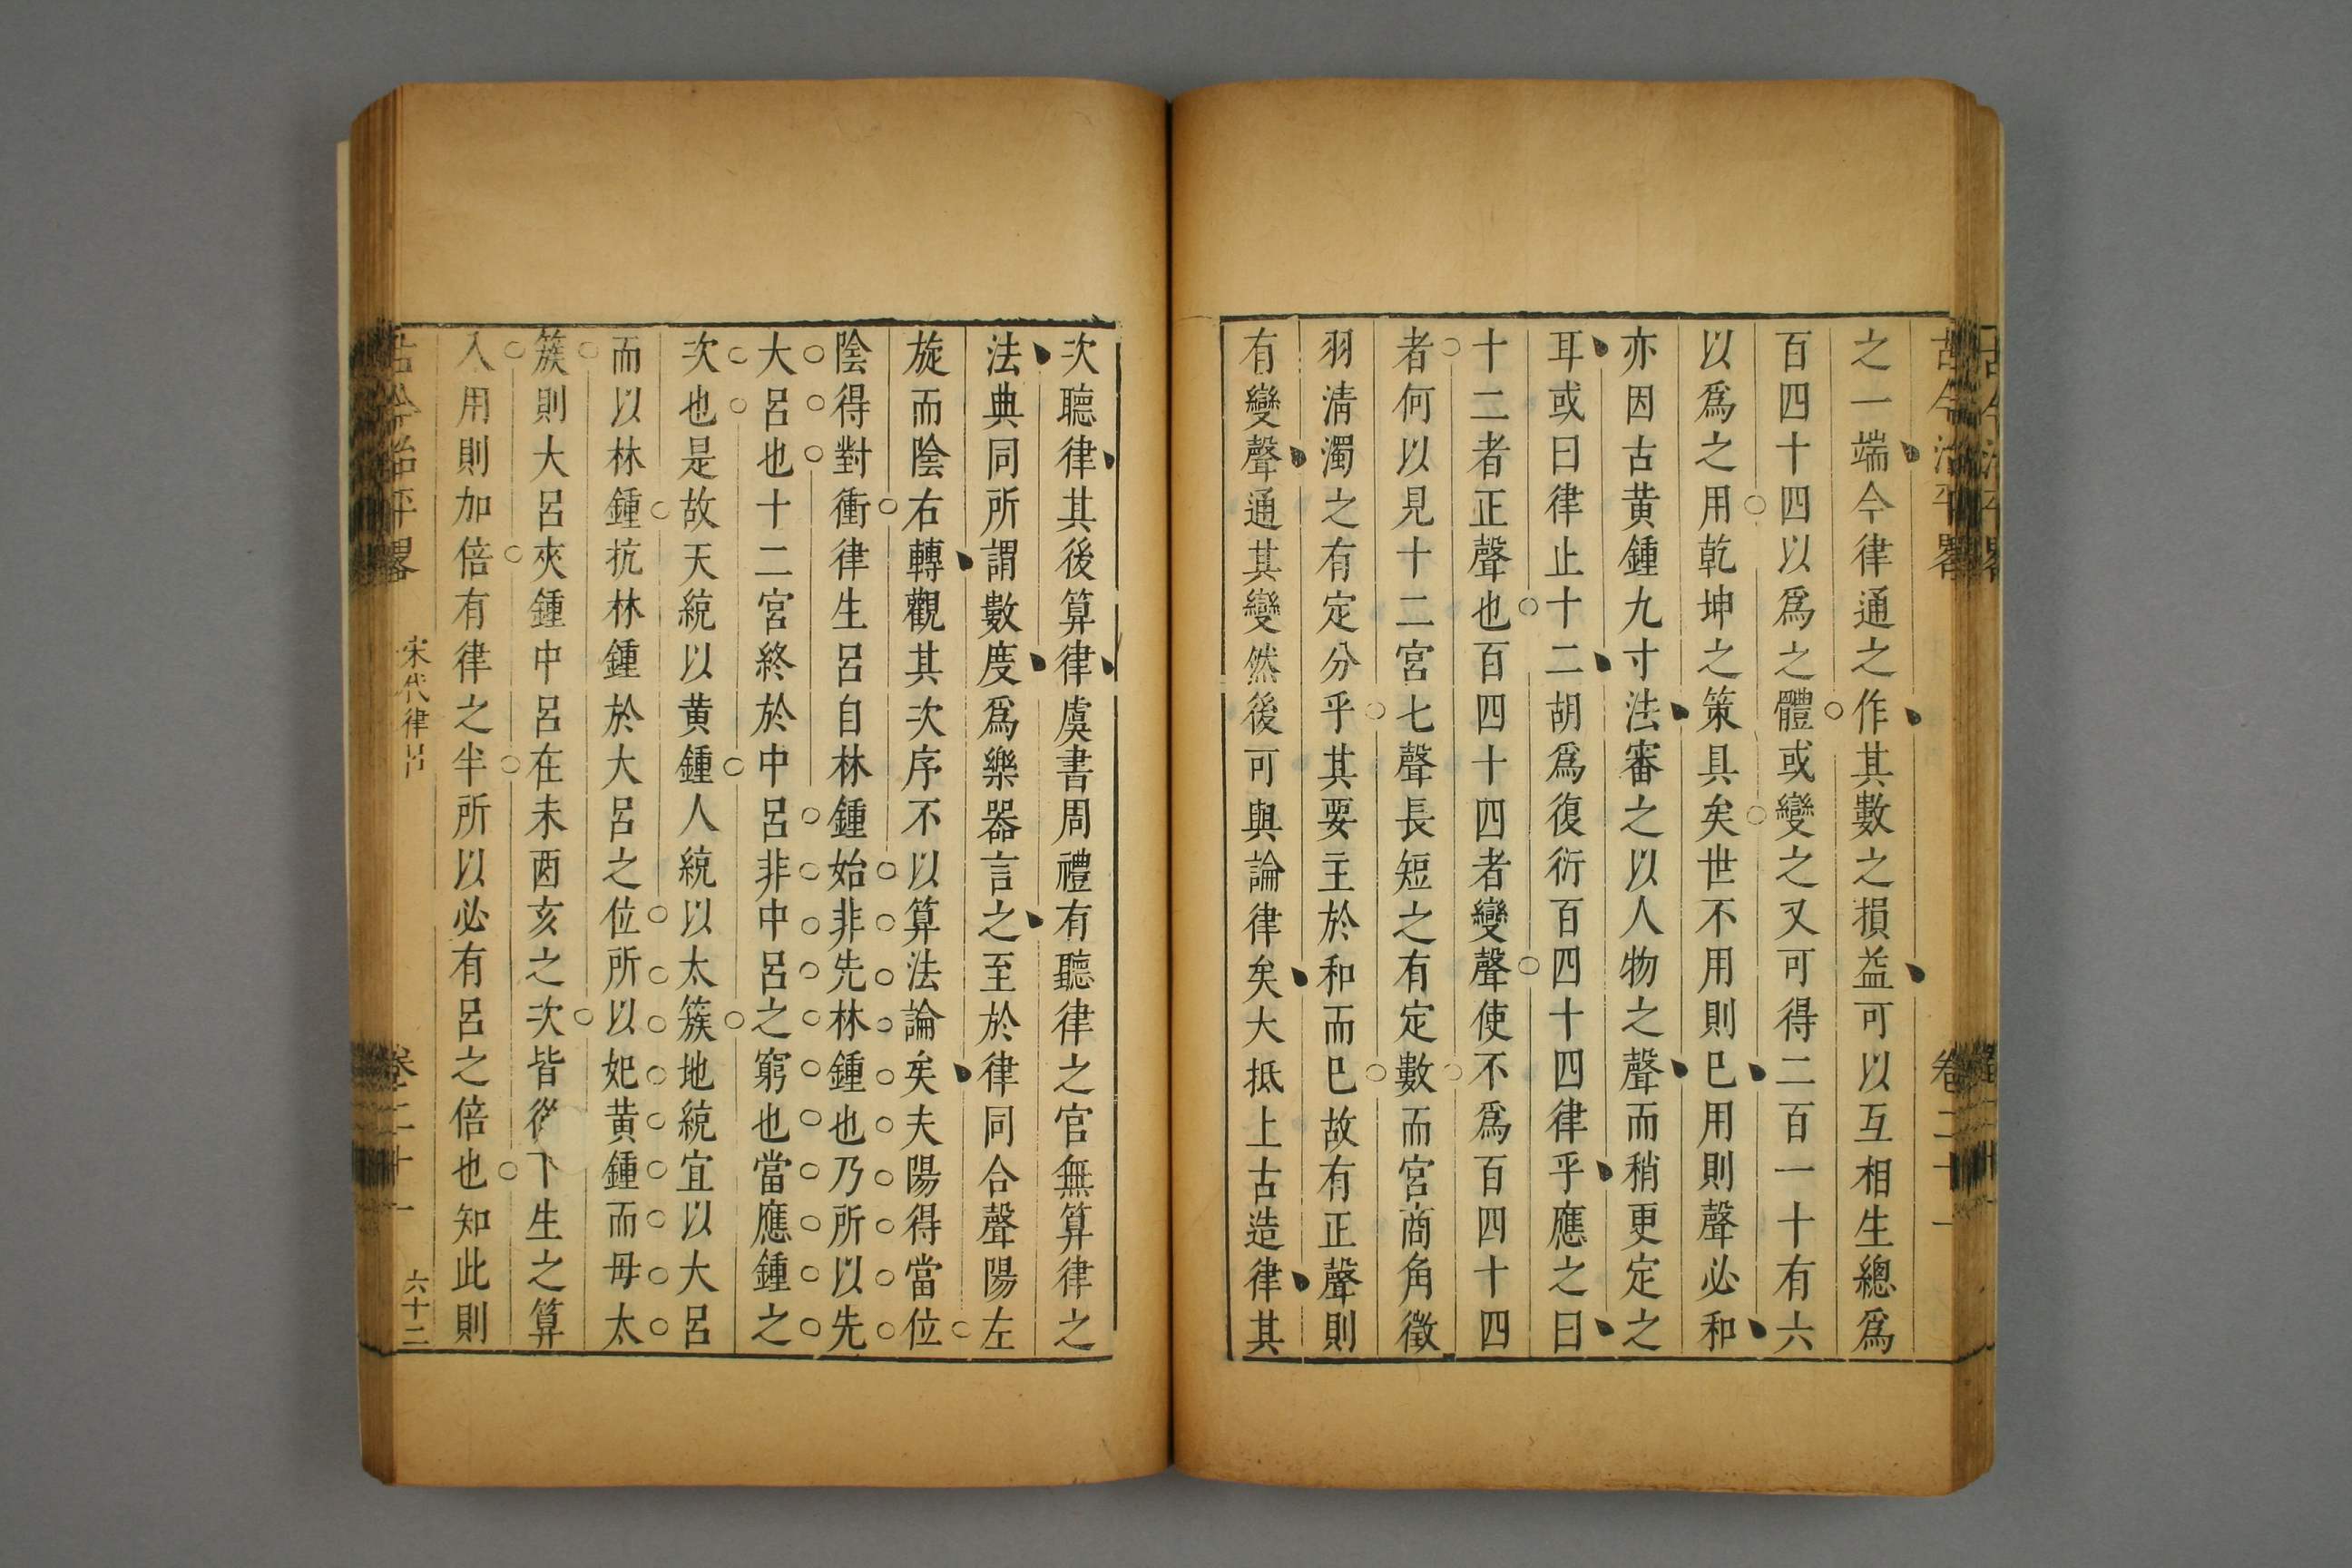 古今治平畧 卷二十一
之一端今律通之作其數之損益可以互相生總爲
百四十四以爲之體或變之又可得二百一十有六
以爲之用乾坤之策具矣世不用則巳用則聲必和
亦因古黄鍾九寸法審之以人物之聲而稍更定之
耳或曰律止十二胡爲復衍百四十四律乎應之曰
十二者正聲也百四十四者變聲使不爲百四十四
者何以見十二宮七聲長短之有定數而宮商角徵
羽清濁之有定分乎其要主於和而巳故有正聲則
有變聲通其變然後可與論律矣大抵上古造律其
次聽律其後算律虞書周禮有聽律之官無算律之
法典同所謂數度爲樂器言之至於律同合聲陽左
旋而陰右轉觀其次序不以算法論矣夫陽得當位
陰得對衝律生呂自林鍾始非先林鍾也乃所以先
大呂也十二宮終於中呂非中呂之窮也當應鍾之
次也是故天統以黄鍾人統以太簇地統宜以大呂
而以林鍾抗林鍾於大呂之位所以妃黄鍾而毋太
簇則大呂夾鍾中呂在未酉亥之次皆從下生之算
入用則加倍有律之半所以必有呂之倍也知此則
古今治平畧 宋代律呂 卷二十一 六十二